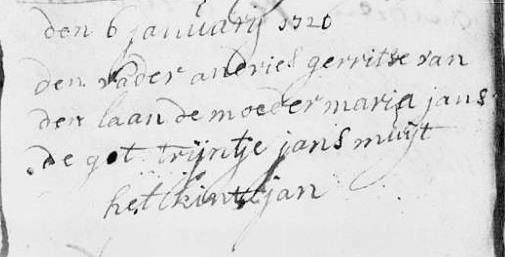 den 6 january 1720
den vader andries gerritse van
der laan de moeder maria jans
de got trijntje jans muijt
het kint jan